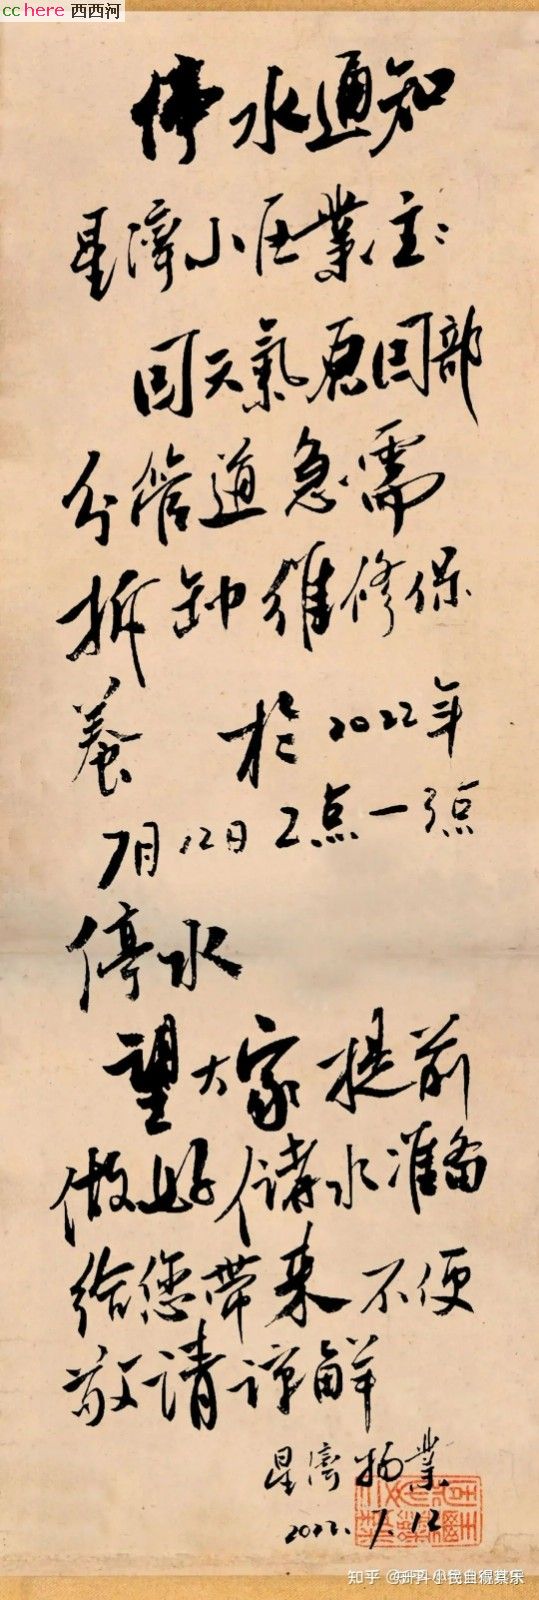 cchere 西西河
停水通知
星濟小区業主:
因天氣原因部
分管道急需
拆卸維修保
養 於2022年
7月12日2点一3点
停水
望大家提前
做好儲水准备
给您带来不便
敬请谅解
星濟物業
2022.7.12
知乎